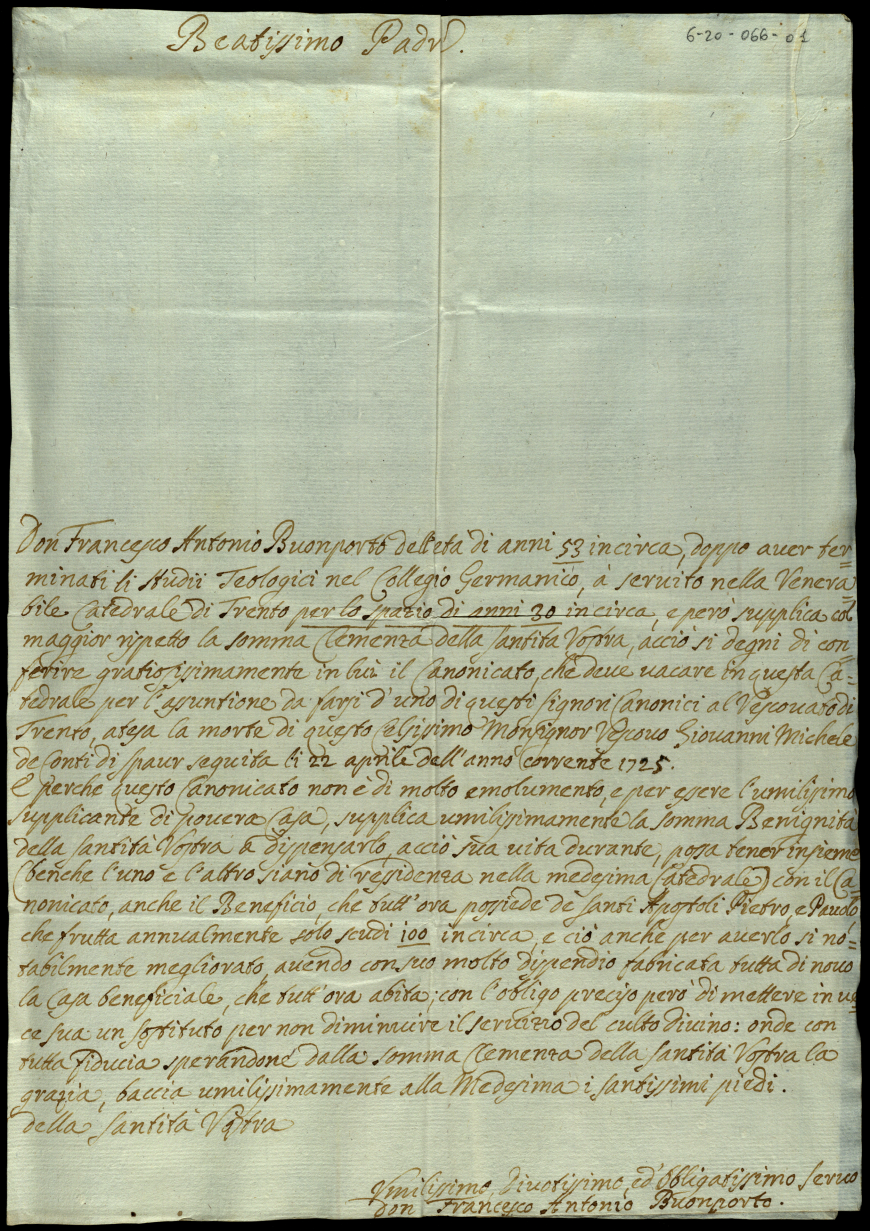 6-20-066-01
Beatissimo Padre.
Don Francesco Antonio Buonporto dell'età di anni 53 incirca, doppo auer ter=
minati li studii Teologici nel Collegio Germanico, à seruito nella Venera=
bile Catedrale di Trento per lo spazio di anni 30 incirca, e però supplica col
maggior rispetto la somma Clemenza della Santità Vostra, acciò si degni di con=
ferire gratiosissimamente in lui il Canonicato, che deue uacare in questa Ca=
tedrale per l'assuntione da farsi d'uno di questi Signori Canonici al Vescouato di
Trento, atesa la morte di questo Celsissimo Monsignor Vescouo Giouanni Michele
de Conti di Spaur seguita li 22 aprile dell'anno corrente 1725.
E perche questo Canonicato non è di molto emolumento, e per essere l'umilissimo
supplicante di pouera Casa, supplica umilissimamente la somma Benignità
della Santità Vostra à dispensarlo, acciò sua uita durante, possa tener insieme
(benche l'uno e l'altro siano di residenza nella medesima Catedrale) con il Ca=
nonicato, anche il Beneficio, che tutt'ora possiede de Santi Apostoli Pietro, e Pauolo,
che frutta annualmente solo scudi 100 incirca, e ciò anche per auerlo si no=
tabilmente megliorato, auendo con suo molto dispendio fabricata tutta di nouo
la Casa beneficiale, che tutt'ora abita; con l'obligo preciso però di mettere in ue=
ce sua un sostituto per non diminuire il seruizio del culto diuino: onde con
tutta fiducia sperandone dalla somma Clemenza della Santità Vostra la
grazia, baccia umilissimamente alla Medesima i santissimi piedi.
della Santità Vostra
Vmilissimo, Diuotissimo, ed' Obligatissimo Seruo
don Francesco Antonio Buonporto.